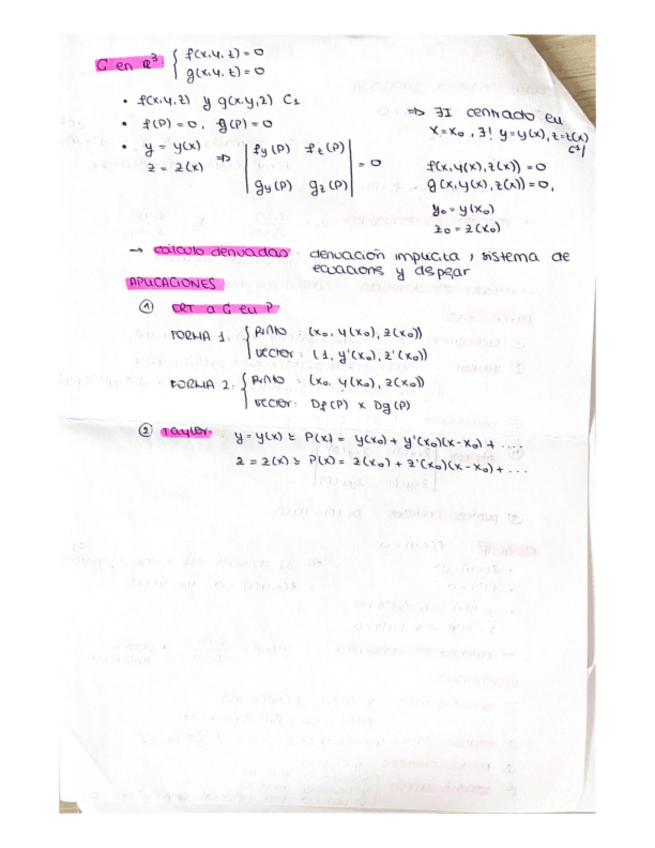 C en R³ { f(x,y,z) = 0
g(x,y,z) = 0
• f(x,y,z) y g(x,y,z) C1
• f(P) = 0, g(P) = 0
• y = y(x)
z = z(x) ⇒ | fy(P) fz(P) |
| gy(P) gz(P) | = 0
⇒ ∃I centrado en
x = x₀, ∃! y = y(x), z = z(x)
C¹/
f(x,y(x),z(x)) = 0
g(x,y(x),z(x)) = 0,
y₀ = y(x₀)
z₀ = z(x₀)
→ cálculo derivadas: derivación implícita, sistema de
ecuacions y despejar
APLICACIONES
① ERT a C en P
FORMA 1: { punto : (x₀, y(x₀), z(x₀))
vector : (1, y'(x₀), z'(x₀))
FORMA 2: { punto : (x₀, y(x₀), z(x₀))
vector: Df(P) x Dg(P)
② Taylor: y = y(x) ≈ P(x) = y(x₀) + y'(x₀)(x-x₀) + ....
z = z(x) ≈ P(x) = z(x₀) + z'(x₀)(x-x₀) + ...